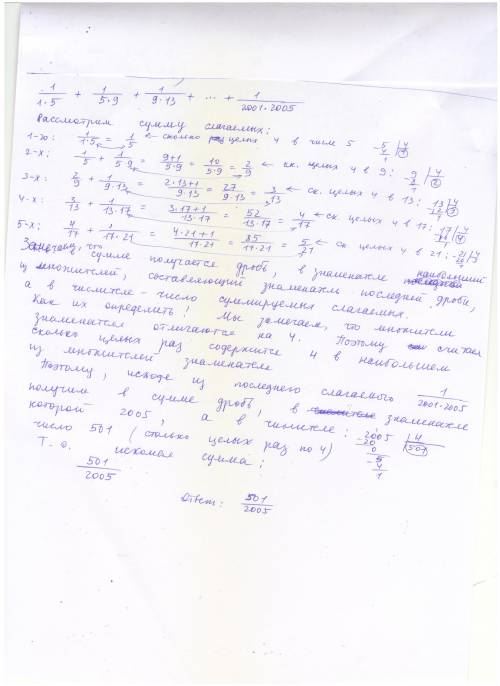 1/(1·5) + 1/(5·9) + 1/(9·13) + ... + 1/(2001·2005)
Рассмотрим сумму слагаемых:
1-го: 1/(1·5) = 1/5 ← сколько целых 4 в числе 5 -5 | 4 4 1 1
2-х: 1/5 + 1/(5·9) = (9+1)/(5·9) = 10/(5·9) = 2/9 ← ск. целых 4 в 9: -9 | 4 8 2 1
3-х: 2/9 + 1/(9·13) = (2·13+1)/(9·13) = 27/(9·13) = 3/13 ← ск. целых 4 в 13: 13 | 4 12 3 1
4-х: 3/13 + 1/(13·17) = (3·17+1)/(13·17) = 52/(13·17) = 4/17 ← ск. целых 4 в 17: 17 | 4 4
5-х: 4/17 + 1/(17·21) = (4·21+1)/(17·21) = 85/(17·21) = 5/21 ← ск целых 4 в 21: -21 | 4
что в сумме получается дробь, в знаменателе наибольший
из множителей, составляющий знаменатель последней дроби,
а в числителе - число суммируемых слагаемых.
Как их определить? Мы замечаем, что множители
знаменателя отличаются на 4. Поэтому считаем
сколько целых раз содержится 4 в наибольшем
из множителей знаменателя
Поэтому, исходя из последнего слагаемого 1/(2001·2005)
получим в сумме дробь, в знаменателе
которой 2005, а в числителе: -2005 | 4
число 501 (столько целых раз по 4) -20 501 0 -5 4 1
Т.о. искомая сумма:
501/2005
Ответ: 501/2005